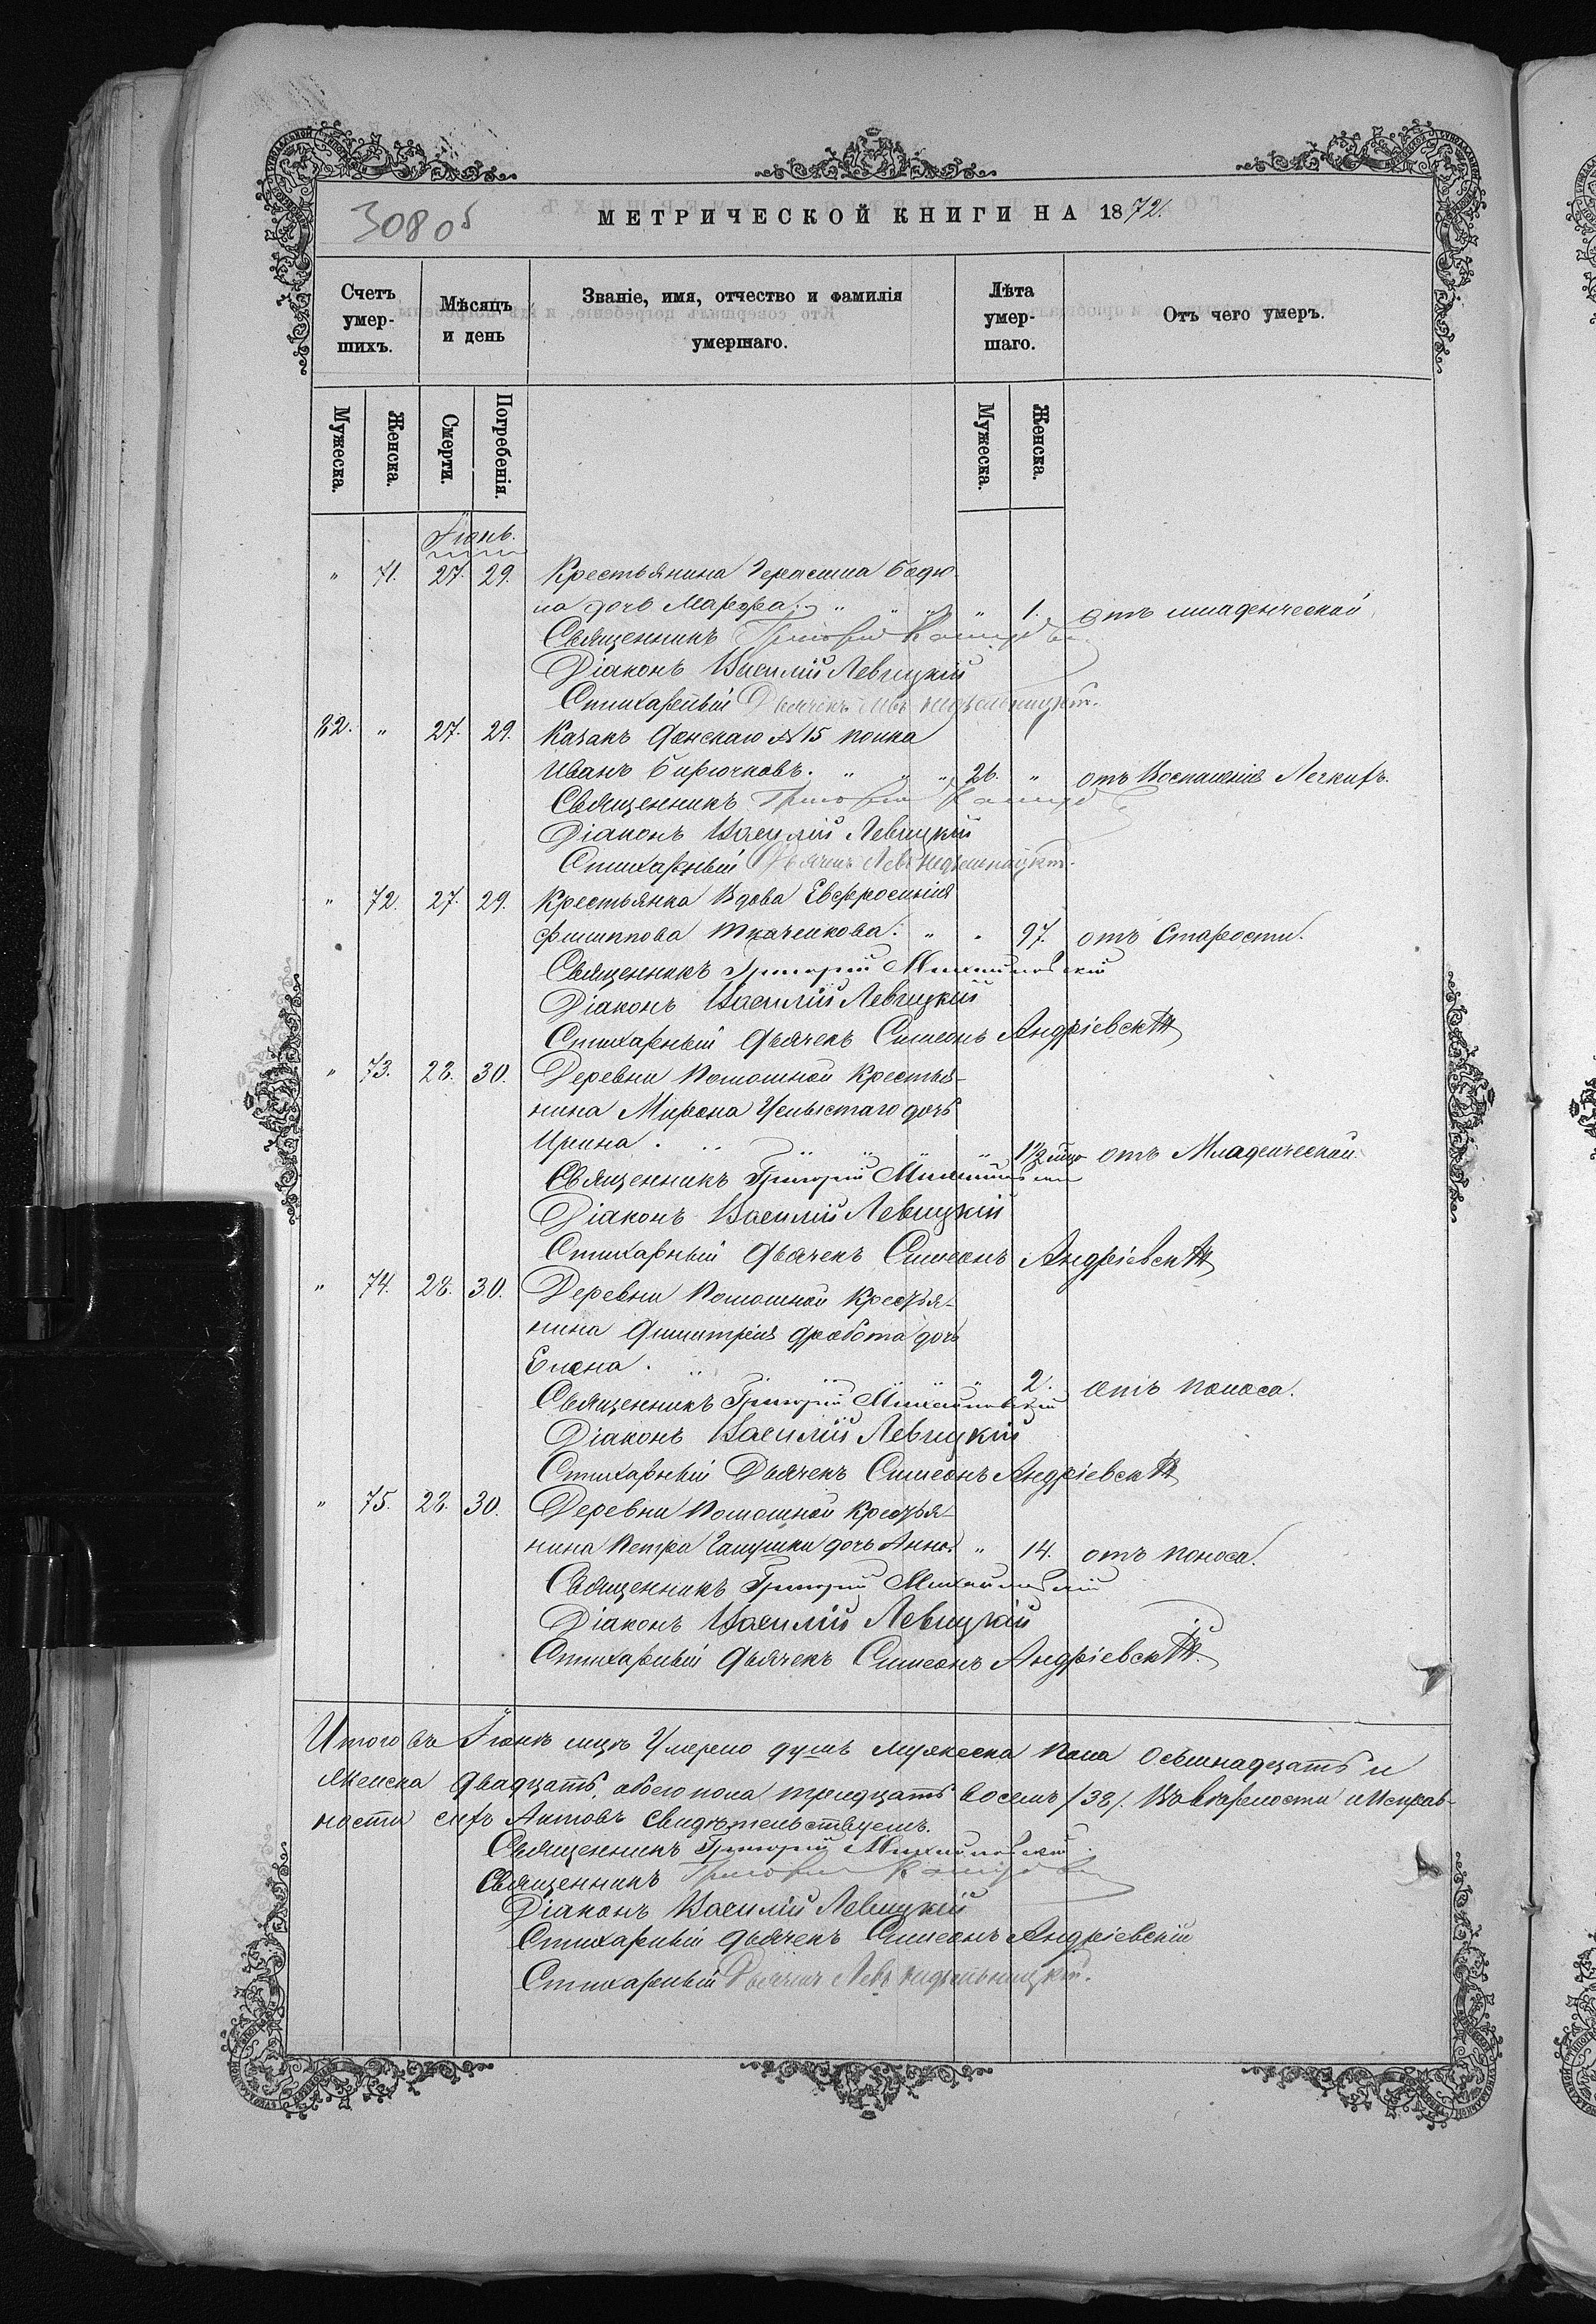 308 об
МЕТРИЧЕСКОЙ КНИГИ НА 1872.
Счетъ умер-шихъ.
Мѣсяцъ и день
Званіе, имя, отчество и фамилія умершаго.
Лѣта умер-шаго.
Отъ чего умеръ.
Мужеска.
Женска.
Смерти.
Погребенія.
Мужеска.
Женска.
Іюнь.
" 71. 27. 29. Крестьянина Герасима
на дочь Марфа. " " " " 1. отъ младенческой
Священникъ Григорій
Діаконъ Василій Левицкій
Стихарный Дьячекъ
82. " 27. 29. Казакъ Донскаго №15 полка
Иванъ Бирючковъ. " " " 26. " отъ Воспаленія Легкихъ.
Священникъ Григорій
Діаконъ Василій Левицкій
Стихарный Дьячекъ Левъ
" 72. 27. 29. Крестьянка Вдова Евфросинія
Филиппова Ткаченкова. " " 97. отъ Старости.
Священникъ Григорій Михайловскій
Діаконъ Василій Левицкій
Стихарный Дьячекъ Симеонъ Андріевскій
" 73. 28. 30. Деревни Помошной Крестья-
нина Мирона дочь
Ирина. " " " " " 1/2 отъ Младенческой.
Священникъ Григорій Михайловскій
Діаконъ Василій Левицкій
Стихарный Дьячекъ Симеонъ Андріевскій
" 74. 28. 30. Деревни Помошной Крестья-
нина Димитрія Дробота дочь
Елена. " " " " " 2. отъ поноса.
Священникъ Григорій Михайловскій
Діаконъ Василій Левицкій
Стихарный Дьячекъ Симеонъ Андріевскій
" 75. 28. 30. Деревни Помошной Крестья-
нина Петра Галушки дочь Анна. " 14. отъ поноса.
Священникъ Григорій Михайловскій
Діаконъ Василій Левицкій
Стихарный Дьячекъ Симеонъ Андріевскій
Итого въ Іюнѣ мцѣ Умерло душъ мужеска пола Осьмнадцать и
женска двадцать, обоего пола тридцать восемь /38/. Въ вѣрности и Исправ-
ности сихъ Актовъ Свидѣтельствуемъ.
Священникъ Григорій Михайловскій
Священникъ Григорій
Діаконъ Василій Левицкій
Стихарный Дьячекъ Симеонъ Андріевскій
Стихарный Дьячекъ Левъ